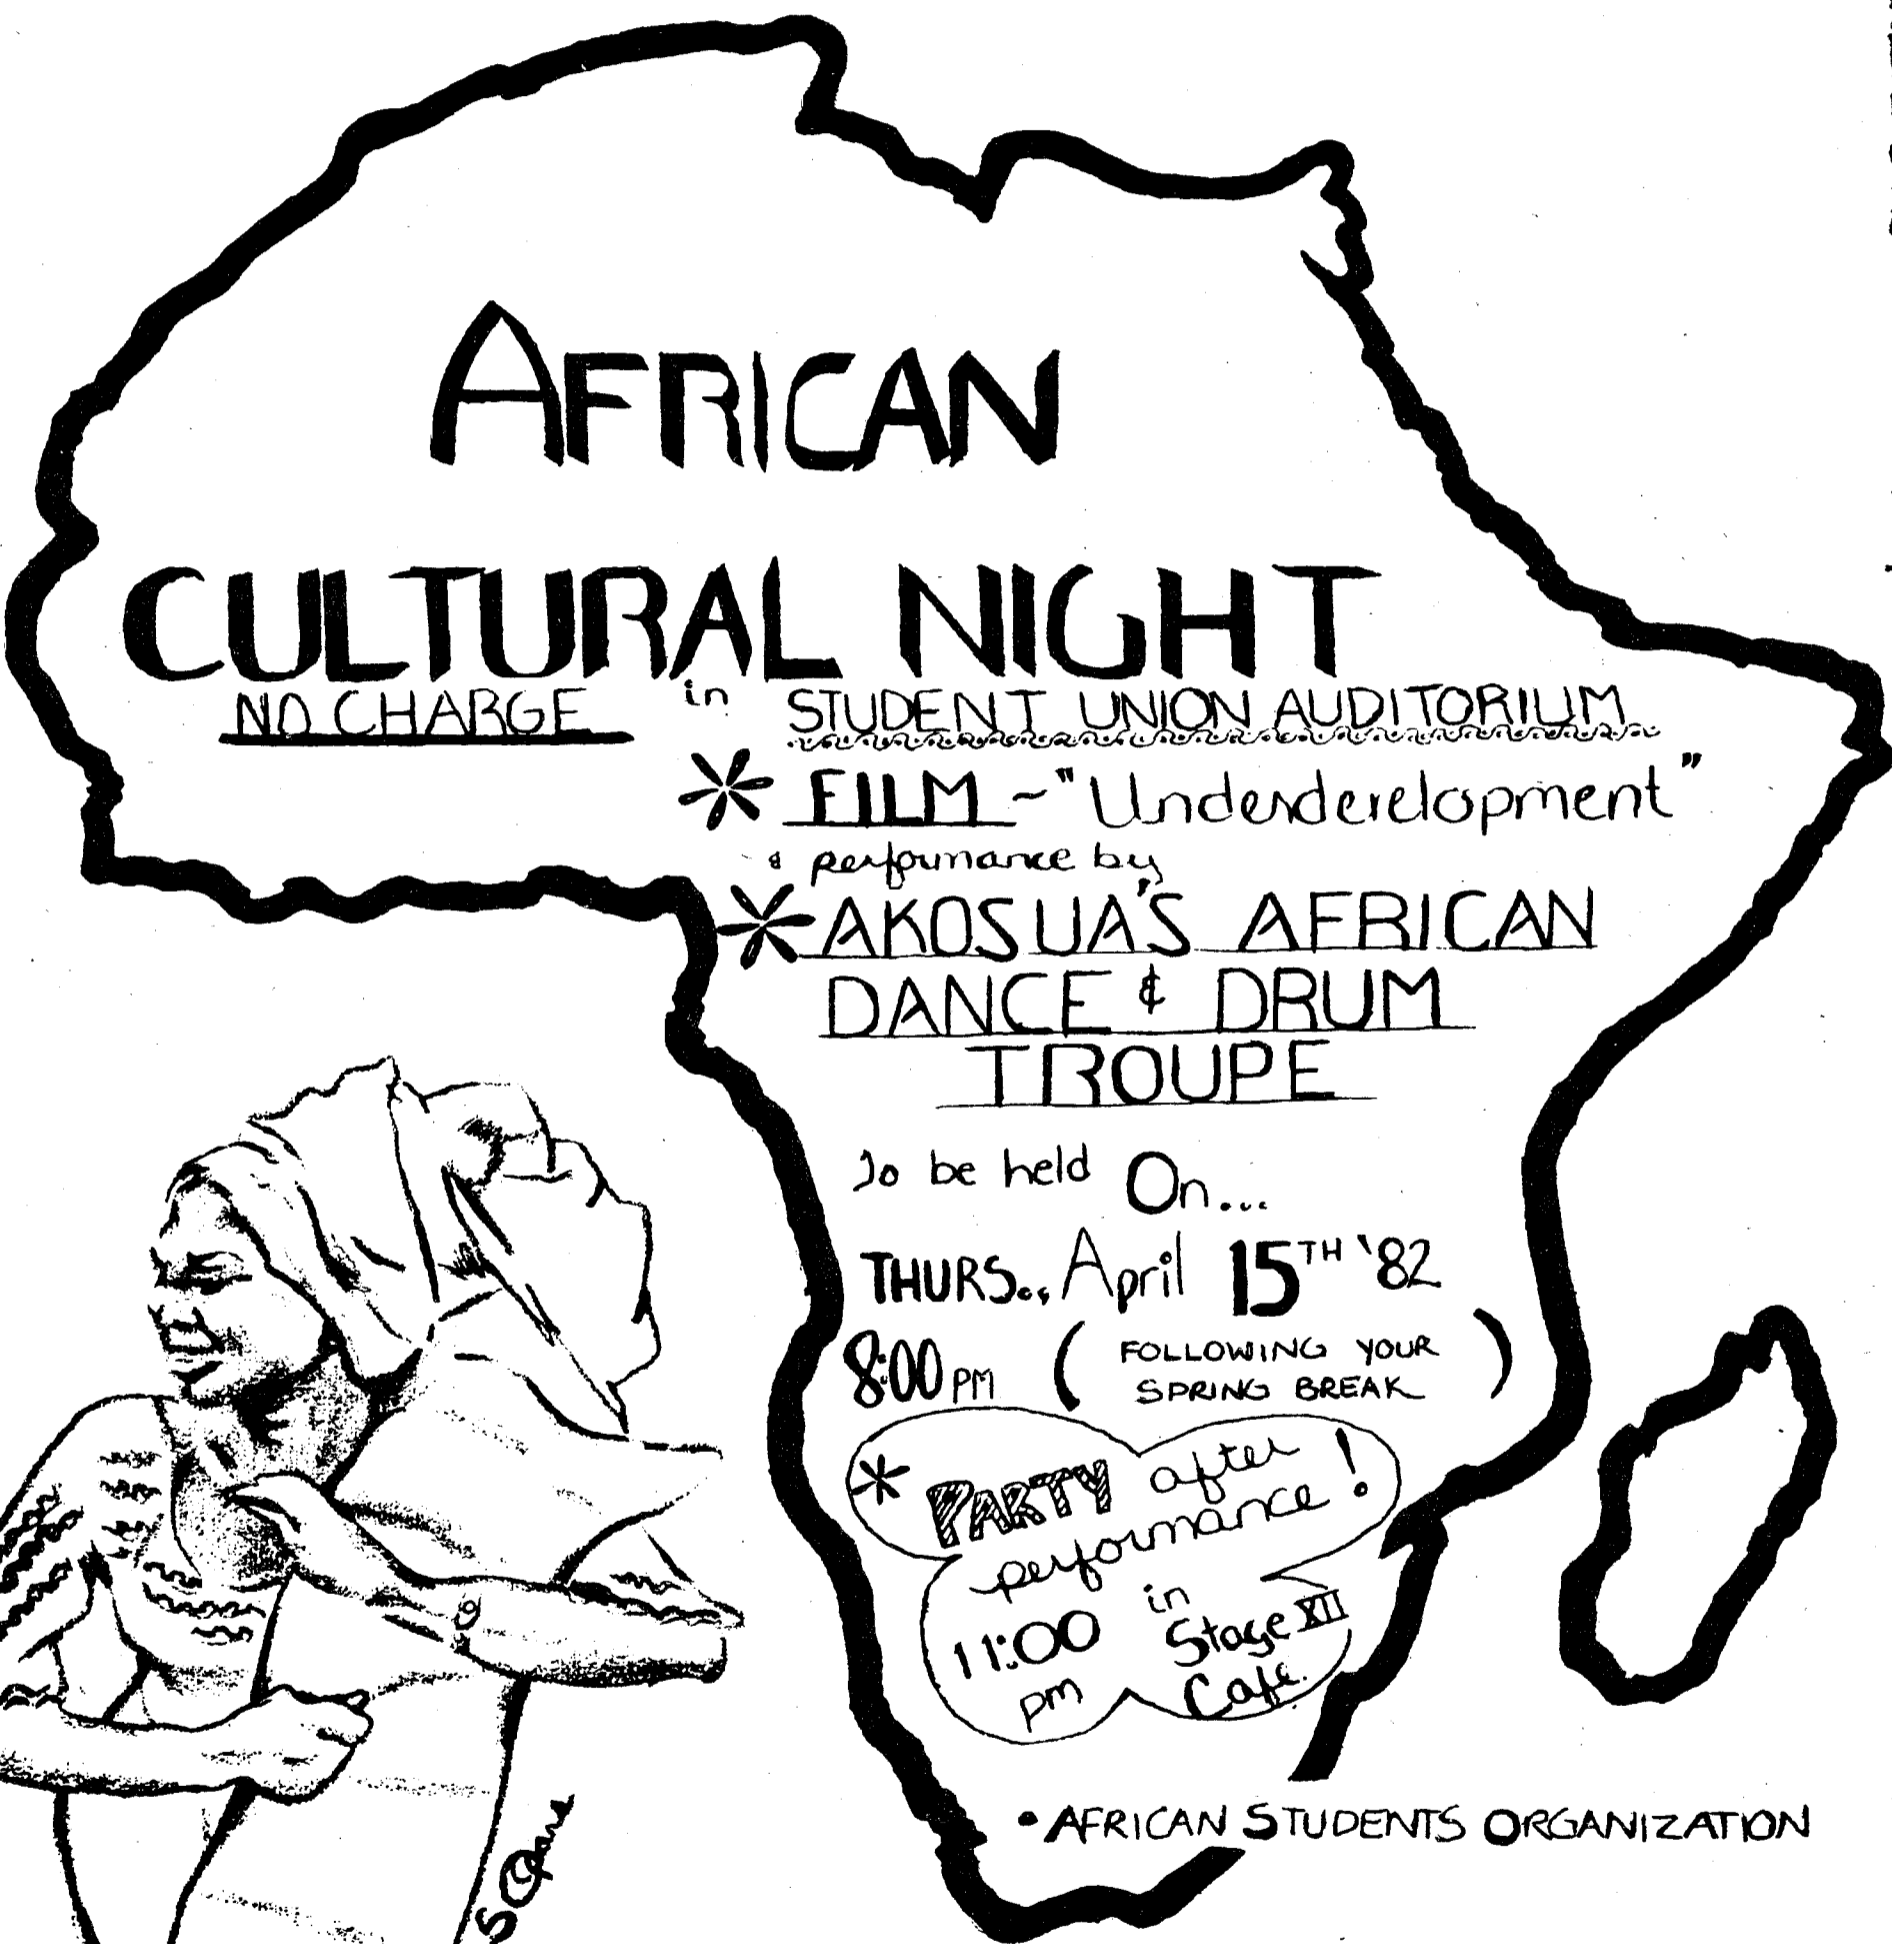 AFRICAN
CULTURAL NIGHT
NO CHARGE in STUDENT UNION AUDITORIUM
* FILM ~ "Underdevelopment"
& performance by
* AKOSUA'S AFRICAN
DANCE & DRUM
TROUPE
To be held On...
THURS.., April 15TH '82
8:00 PM ( FOLLOWING YOUR
SPRING BREAK )
* PARTY after
performance!
11:00 pm
in
Stage XII
Cafe.
• AFRICAN STUDENTS ORGANIZATION